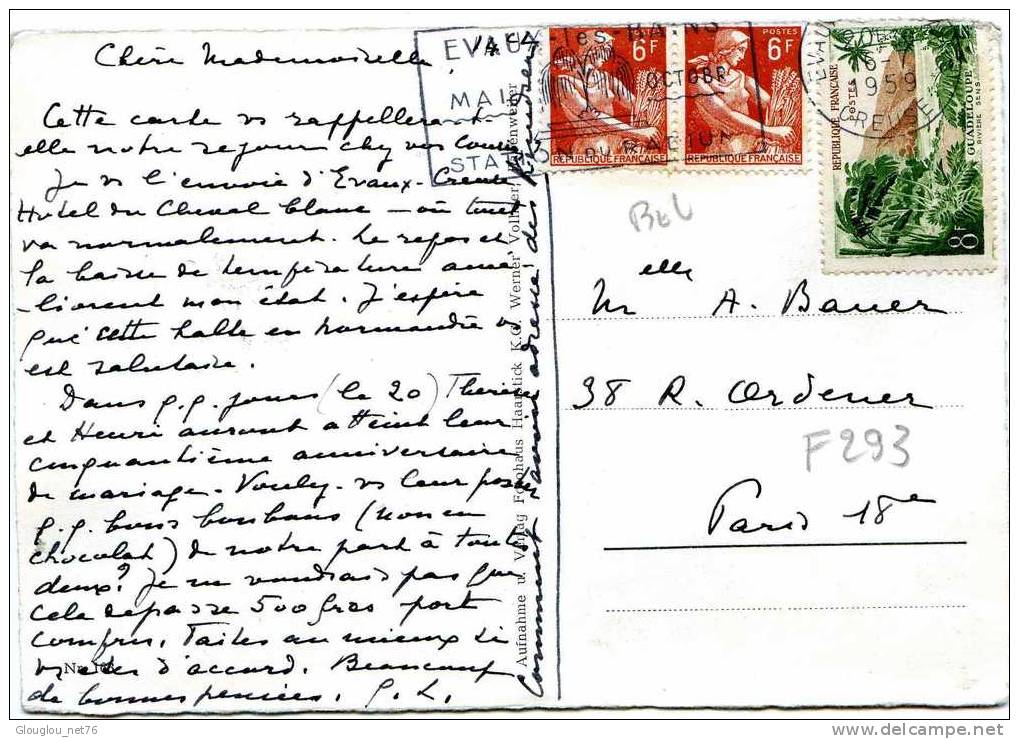 Chère Mademoiselle,
Cette carte vs rappellera-t-
elle notre sejour chez vos
Je vs l'envoie d'Evaux-Creuse
Hotel du Cheval blanc — où tout
va normalement. Le repos et
la baisse de température amé
-liorent mon état. J'espère
que cette halte en Normandie vs
est salutaire.
Dans q.q. jours (le 20) Thérèse
et Henri auront atteint leur
cinquantième anniversaire
de mariage. Voulez-vs leur poster
q.q. bons bonbons (non en
chocolat) de notre part à toutes
deux? Je ne voudrais pas que
cela dépasse 500 grs port
compris. Faites au mieux si
vs êtes d'accord. Beaucoup
de bonnes pensées. G. L.
comment avoir adresse des
Aufnahme u. Verlag Fotohaus Haarstick K.G. Werner Vollmer,
Nr.
EVAUX-les-BAINS
MAI OCTOBR
STATION DU RADIUM
6F POSTES 6F
REPUBLIQUE FRANÇAISE REPUBLIQUE FRANÇAISE
EVAUX
1959
CREUSE
REPUBLIQUE FRANÇAISE
POSTES
GUADELOUPE
RIVIÈRE SENS
8F
Melle A. Bauer
38 R. Ordener
F293
Paris 18e
Glouglou_net76
www.delcampe.net